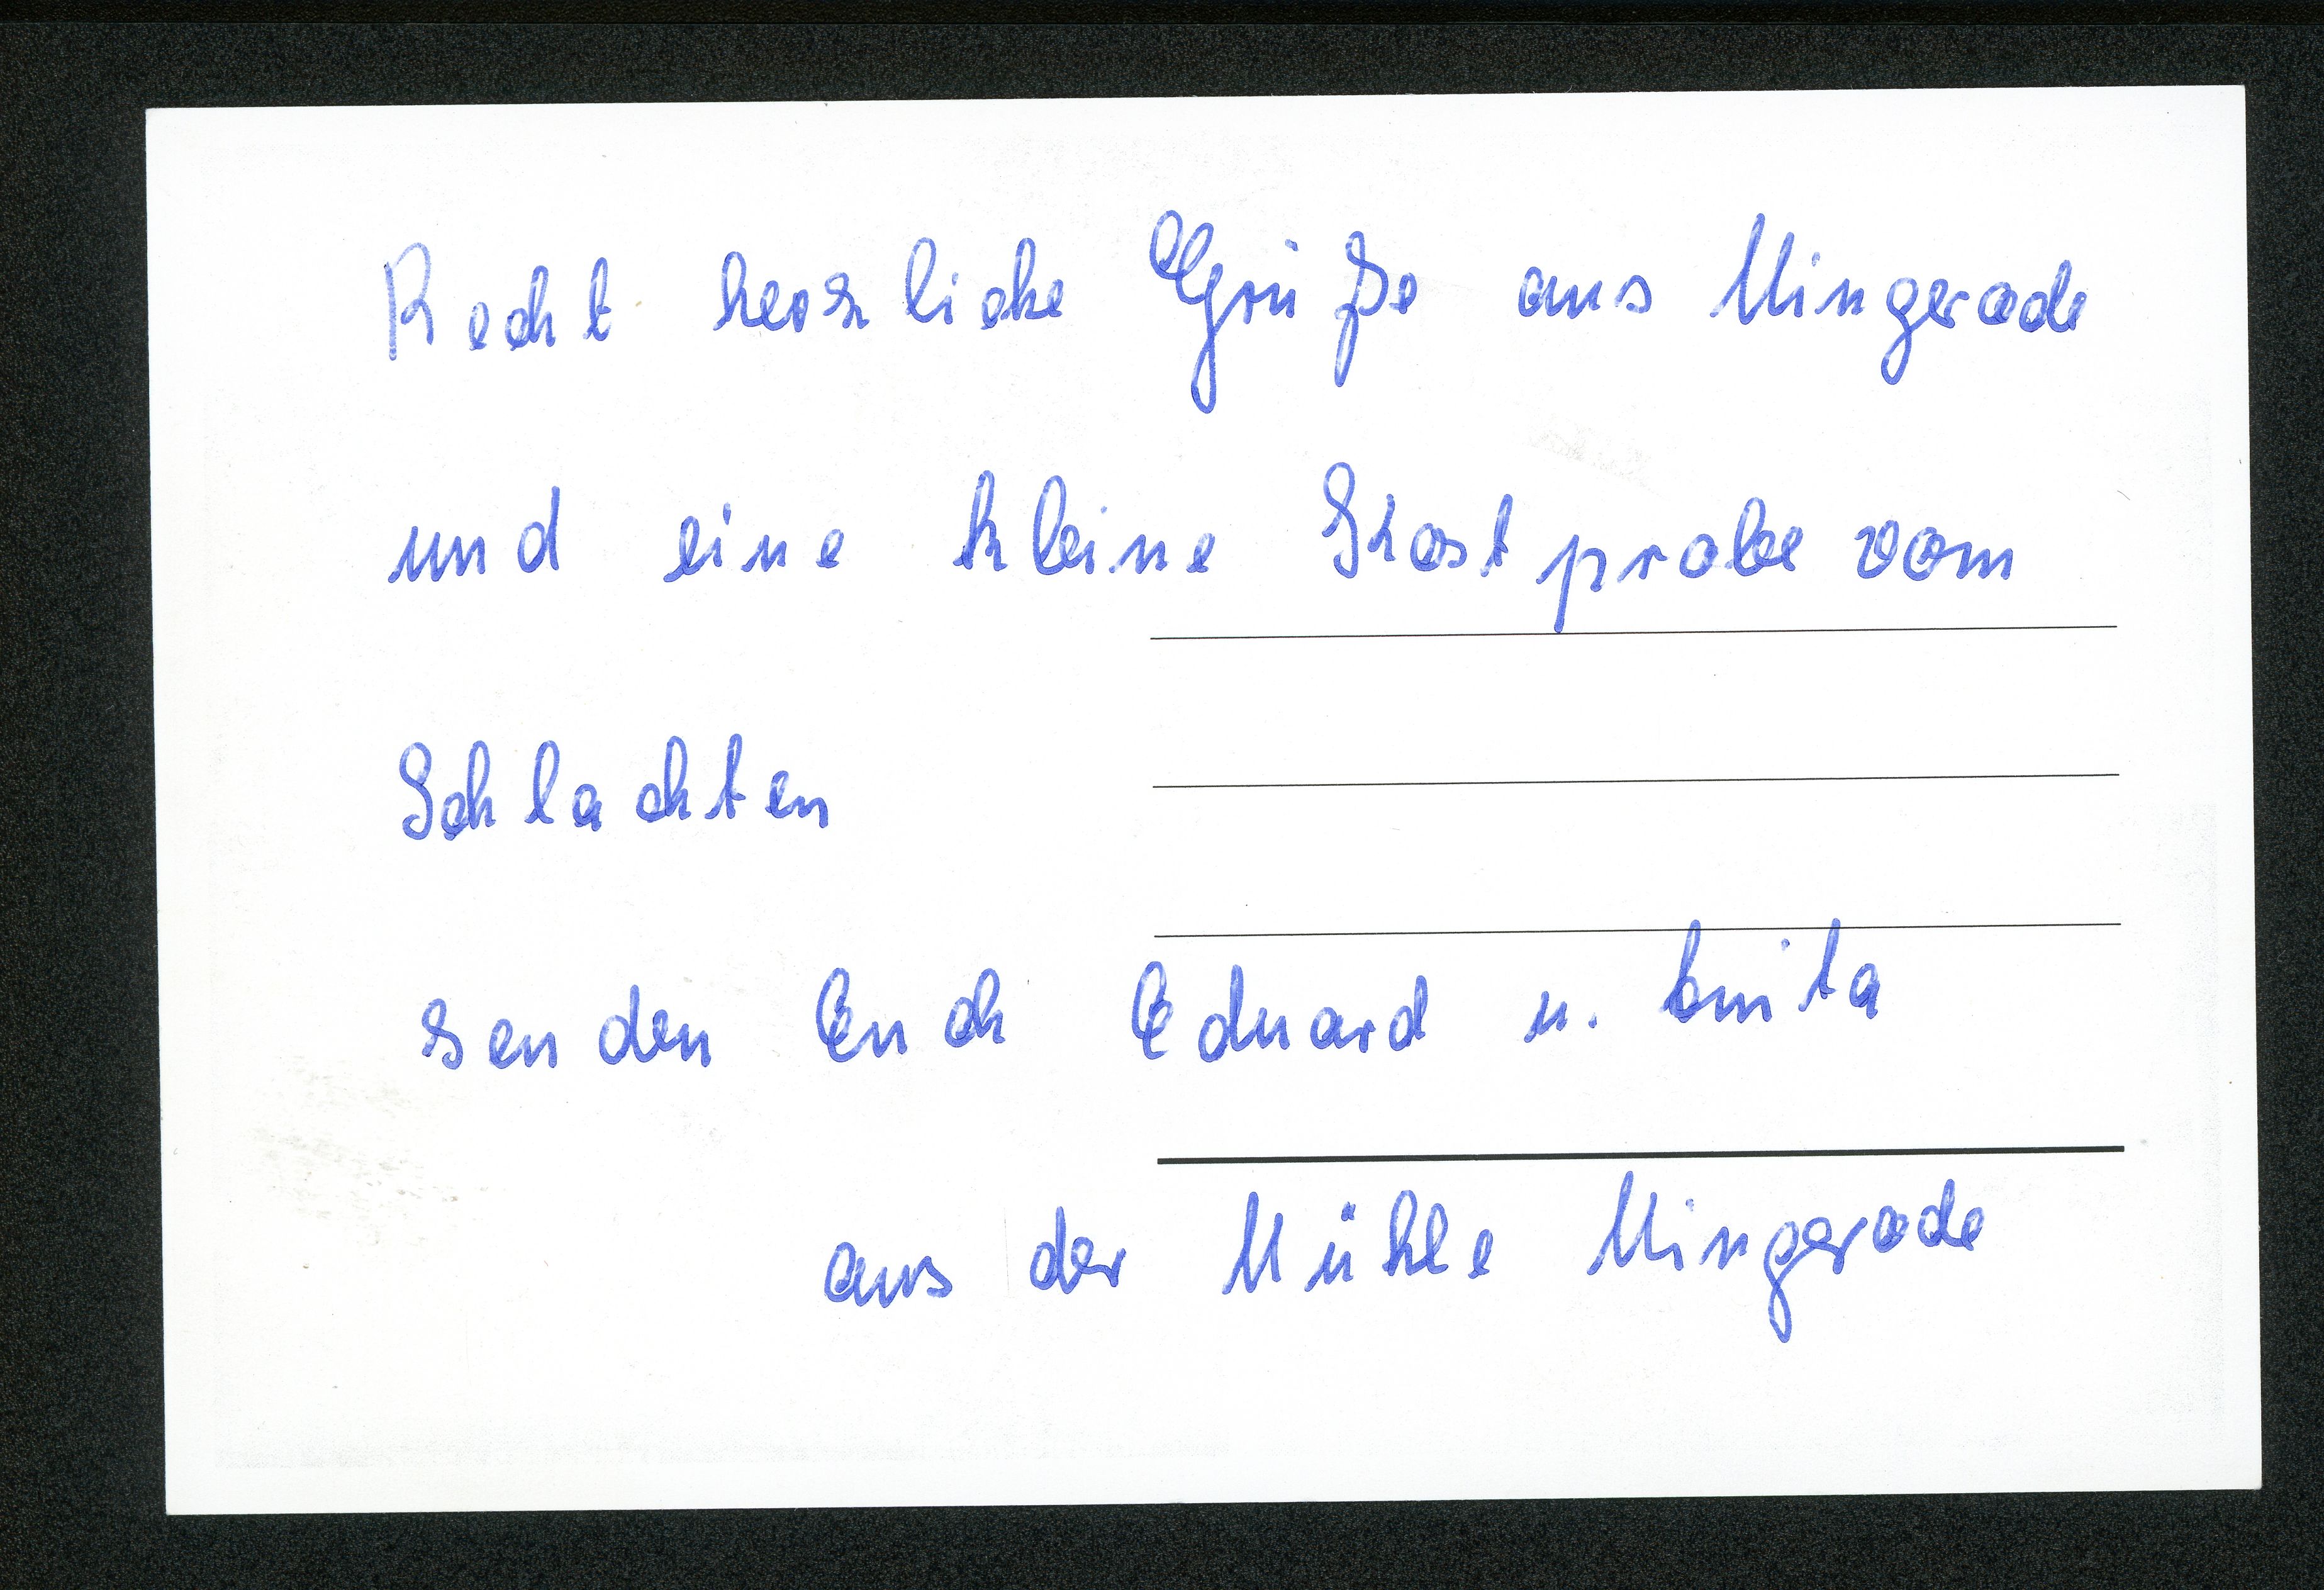 Recht herzliche Grüße aus Mingerode
und eine kleine Kostprobe vom
Schlachten
senden Euch Eduard u. Anita
aus der Mühle Mingerode